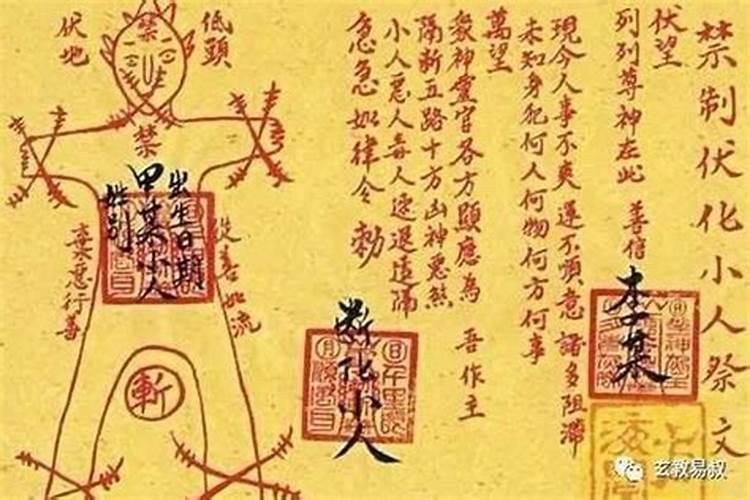 禁制伏化小人祭文
伏望
列列尊神在此 善信 李某
現今人事不爽運不順意諸多阻滯
未知身犯何人何物何方何事
萬望
眾神靈官各方顯應為 吾作主
隔断五路十方凶神惡煞
小人惡人毒人速退遠隔
急急如律令 勅
断化小人
低頭
禁
伏地
禁
出生日期
甲某小人
姓別
從善如流
棄惡行善
斬
玄教易叔